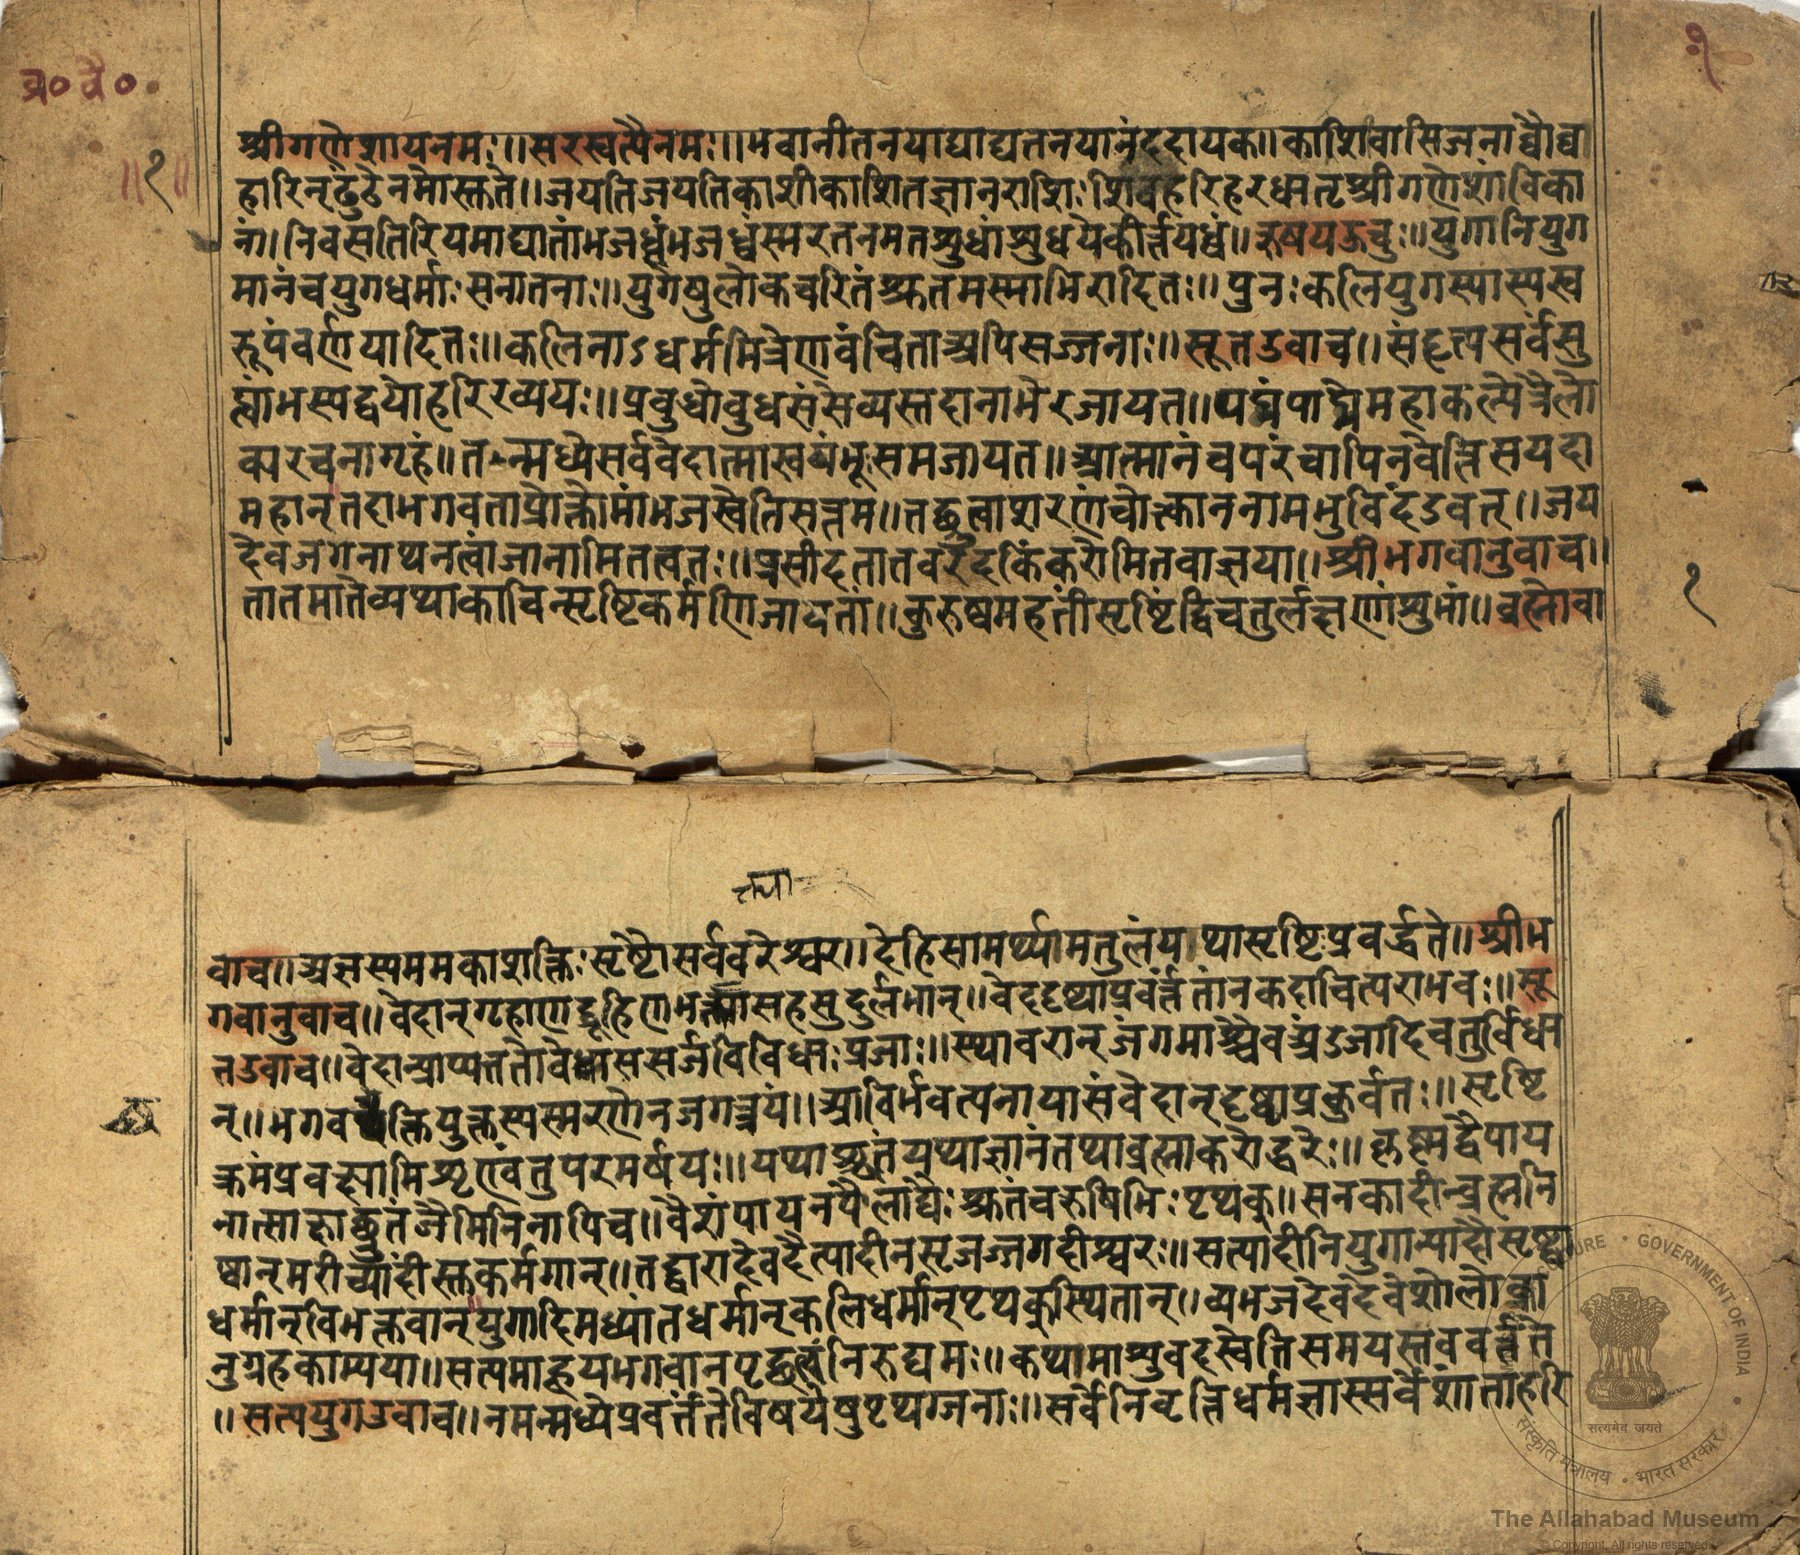 ब्र० वै०
१
॥१॥
श्रीगणेशायनमः॥सरस्वत्यैनमः॥भवानीतनयाद्याद्यतनयानंददायक॥काशिवासिजनाघौघा
हारिन्ढुंढेनमोस्तुते॥जयतिजयतिकाशीकाशितज्ञानराशिःशिवहरिहरधातृश्रीगणेशांविका
नां।निवसतिरियमाद्यातांभजध्वंभजध्वंस्मरतनमतश्रुधांश्रुधयेकीर्त्तयध्वं॥ऋषयऊचुः॥युगानियुग
मानंचयुगधर्माःसनातनाः॥युगेषुलोकचरितंश्रुतमस्माभिरादितः॥पुनःकलियुगस्यास्यस्व
रूपंवर्णयादितः॥कलिनाऽधर्ममित्रेणवंचिताअपिसज्जनाः॥सूतउवाच॥संहृत्यसर्वसु
प्तांभस्यद्वयोहरिरव्ययः॥प्रबुधोबुधसंसेव्यस्तदानाभेरजायत॥पद्मंपाद्मेमहाकल्पेत्रैलो
क्यरचनागृहं॥तन्मध्येसर्ववेदात्मास्वयंभूःसमजायत॥आत्मानंचपरंचापिनवेत्तिसयदा
महान्तदाभगवताप्रोक्तोमांभजस्वेतिसत्तम॥तछ्रुत्वाशरणंचोत्काननामभुविदंडवत्॥जय
देवजगनाथनत्वांजानामितत्वतः॥प्रसीदतातवरदकिंकरोमितवाज्ञया॥श्रीभगवानुवाच॥
तातमातेव्यथाकाचित्सृष्टिकर्मणिजायतां॥कुरुष्वमहतींसृष्टिंद्विचतुर्लक्षणांशुभां॥ब्रह्मोवा
१
तथा
वाच॥अज्ञस्यममकाशक्तिःसृष्टौसर्ववरेश्वर॥देहिसामर्थ्यमतुलंयथासृष्टिःप्रवर्द्धते॥श्रीभ
गवानुवाच॥वेदान्गृहाणद्रुहिणमत्तासहसुदुर्लभान्॥वेददृष्ट्याप्रवर्त्ततांनकदाचित्पराभवः॥सू
तउवाच॥वेदान्प्राप्यततोवेधाससर्जविविधाःप्रजाः॥स्थावरान्जंगमाश्चैवअंडजादिचतुर्विधा
न्॥भगवच्छक्तियुक्तस्यस्मरणेनजगत्त्रयं॥आविर्भवत्यनायासंवेदान्दृष्ट्वाप्रकुर्वतः॥सृष्टि
क्रमंप्रवक्ष्यामिशृण्वंतुपरमर्षयः॥यथाश्रुतंयथाज्ञानंतथाब्रह्माकरोद्धरेः॥कृष्णद्वैपाय
नात्साक्षाछ्रुतंजैमिनिनापिच॥वैशंपायनपैलाद्यैःश्रुतंचऋषिभिःपृथक्॥सनकादीन्ब्रह्मनि
ष्ठान्मरीच्यादींस्तुकर्मगान्॥तद्द्वारादेवदैत्यादीनसृजज्जगदीश्वरः॥सत्यादीनियुगान्यादौसृष्ट्वा
धर्मान्विभक्तवान्युगादिमध्यांतधर्मान्कलिधर्मान्पृथक्स्थितान्॥व्यभजद्देवदेवेशोलोका
नुग्रहकाम्यया॥सत्यमाहूयभगवानपृछत्वंनिरुद्यमः॥कथमाशुवदस्वेतिसमयस्तववर्त्तते
॥सत्ययुगउवाच॥नमन्मध्येप्रवर्त्तंतेविषयेषुपृथग्जनाः॥सर्वेनिवृत्तिधर्मज्ञास्सर्वेशांताहरि
GOVERNMENT OF INDIA
सत्यमेव जयते
संस्कृति मंत्रालय • भारत सरकार
The Allahabad Museum
© Copyright, All rights reserved.